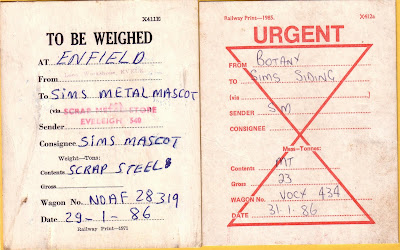 X4111E
TO BE WEIGHED
AT ENFIELD
From
To SIMS METAL MASCOT
(via SCRAP METAL STORE
EVELEIGH 548
Sender
Consignee SIMS MASCOT
Weight—Tons:
Contents SCRAP STEEL
Gross
Wagon No. NOAF 28319
Date 29-1-86
Railway Print—1971
Railway Print—1985.
X412a
URGENT
FROM BOTANY
TO SIMS SIDING
[via ]
SENDER SIM
CONSIGNEE
Mass—Tonnes:
Contents MT
Gross 23
WAGON No. VOCX 434
DATE 31.1.86